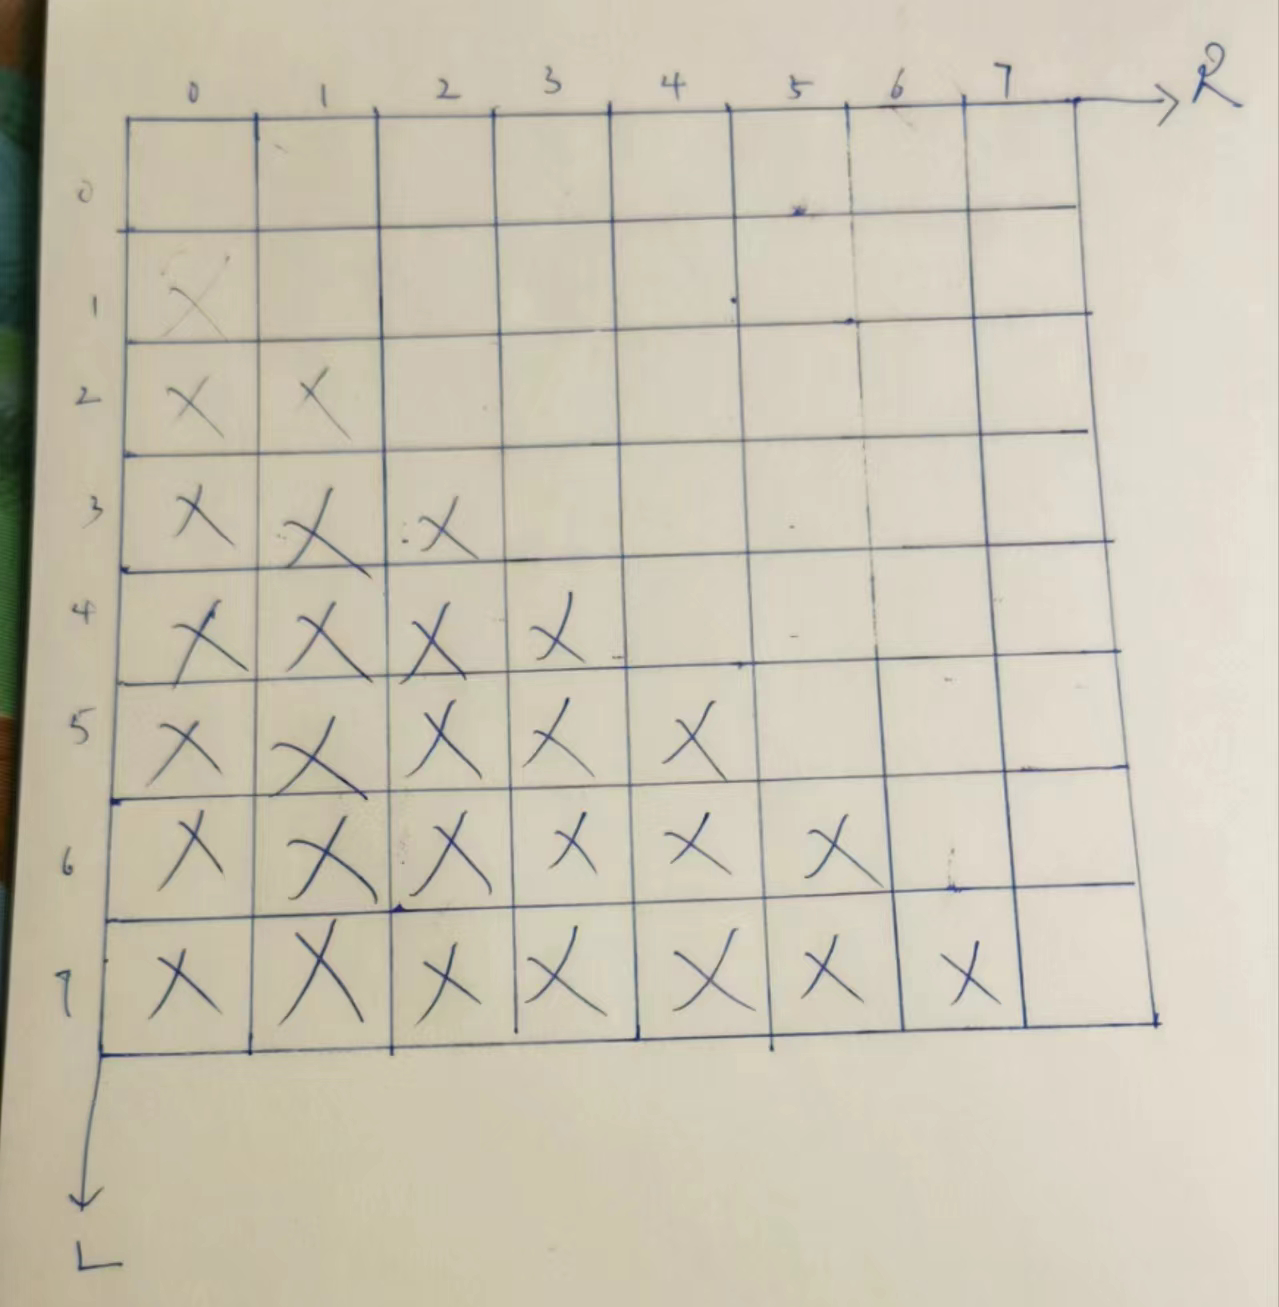 0 1 2 3 4 5 6 7 R
0
1 X
2 X X
3 X X X
4 X X X X
5 X X X X X
6 X X X X X X
7 X X X X X X X
L